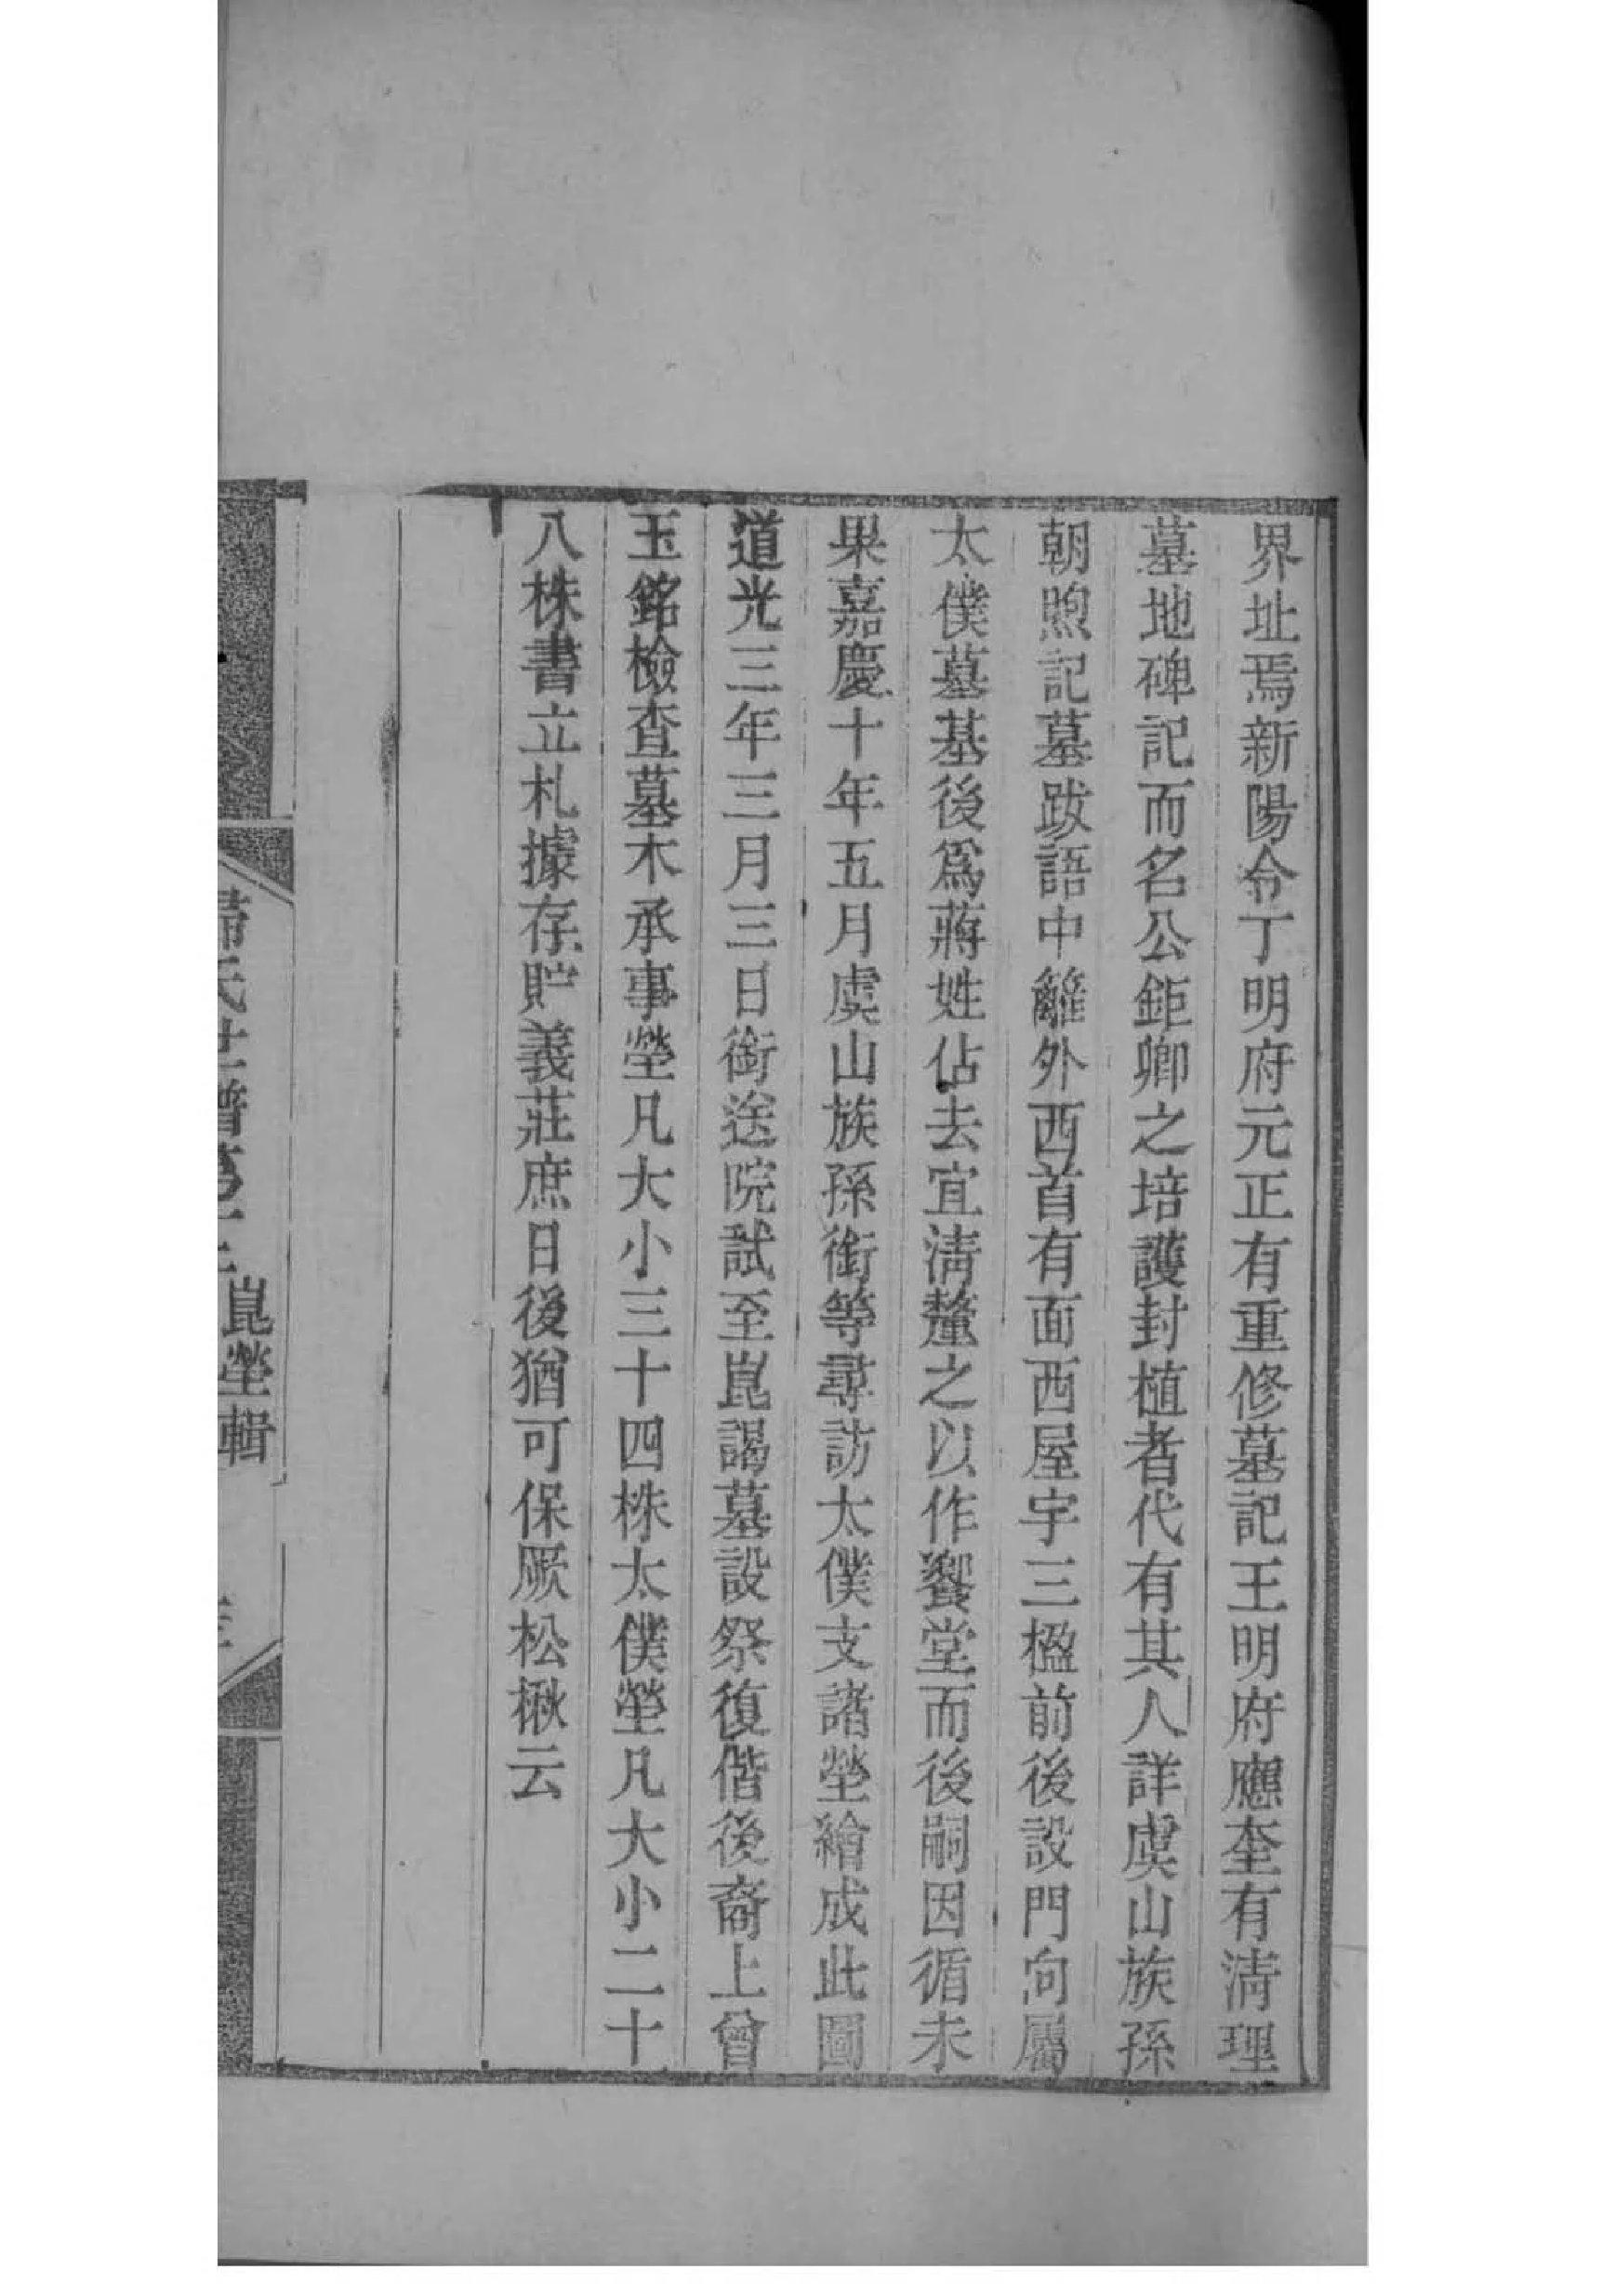 界址焉新陽令丁明府元正有重修墓記王明府應奎有清理
墓地碑記而名公鉅卿之培護封植者代有其人詳虞山族孫
朝煦記墓跋語中籬外西首有面西屋宇三楹前後設門向屬
太僕墓基後爲蔣姓佔去宜清釐之以作饗堂而後嗣因循未
果嘉慶十年五月虞山族孫銜等尋訪太僕支諸塋繪成此圖
道光三年三月三日銜送院試至崑謁墓設祭復偕後裔上曾
玉銘檢查墓木承事塋凡大小三十四株太僕塋凡大小二十
八株書立札據存貯義莊庶日後猶可保厥松楸云
歸氏世譜第
崑塋輯